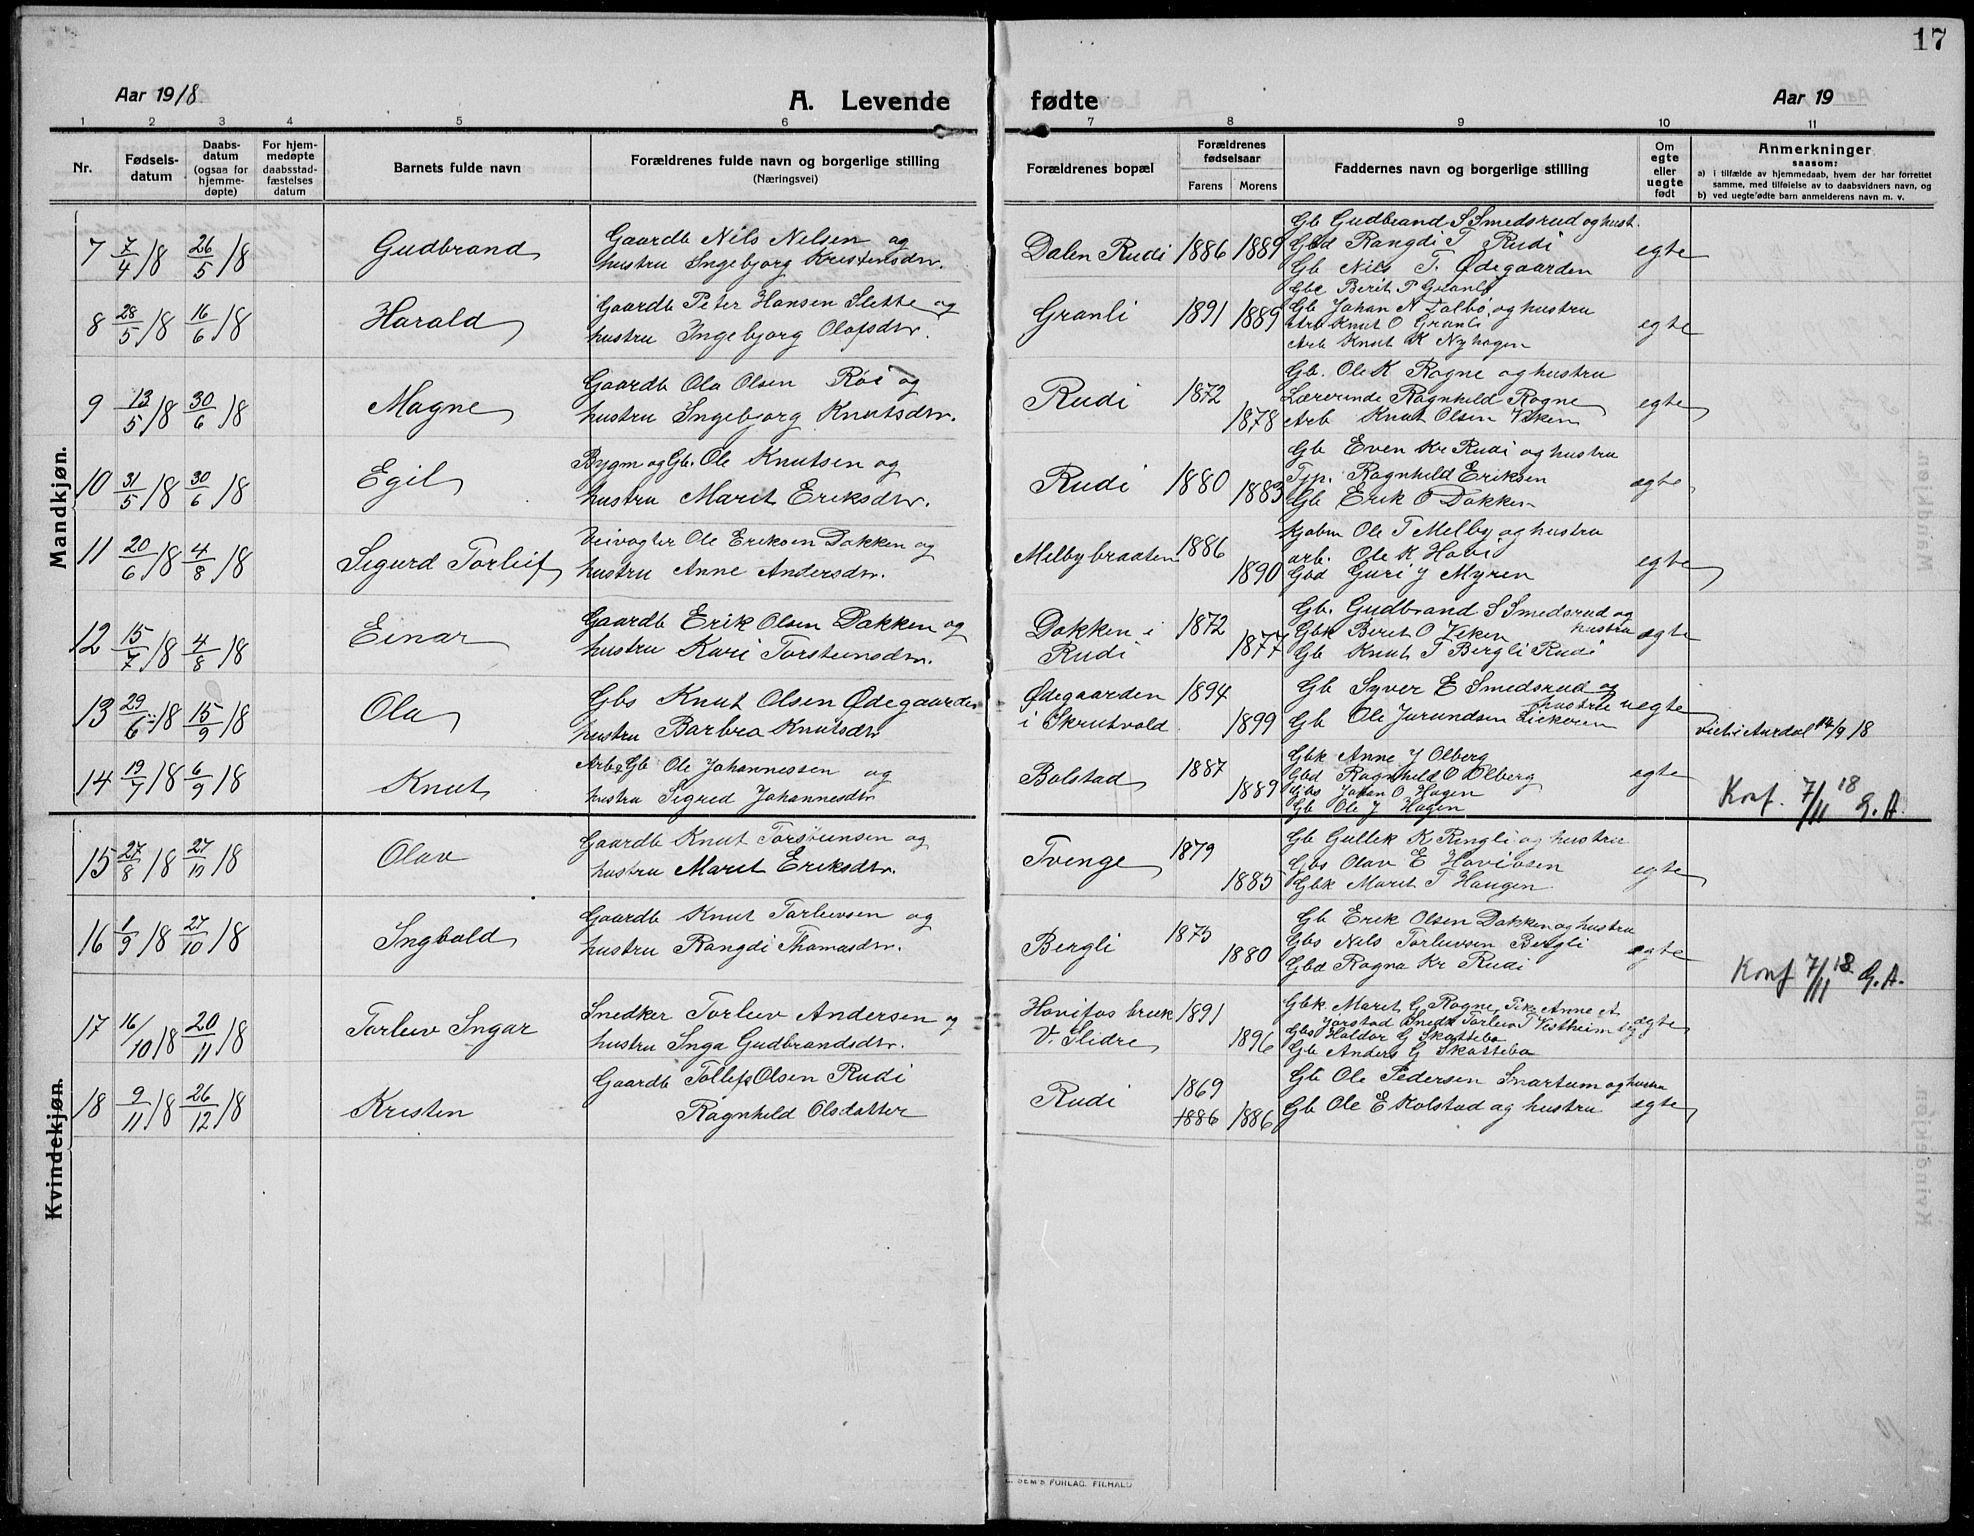 17
Aar 1918
A. Levende fødte
Aar 19
1 2 3 4 5 6 7 8 9 10 11
Nr.
Fødsels-
datum
Daabs-
datum
(ogsaa for
hjemme-
døpte)
For hjem-
medøpte
daabsstad-
fæstelses
datum
Barnets fulde navn
Forældrenes fulde navn og borgerlige stilling
(Næringsvei)
Forældrenes bopæl
Forældrenes
fødselsaar
Farens Morens
Faddernes navn og borgerlige stilling
Om
egte
eller
uegte
født
Anmerkninger
saasom:
a) i tilfælde av hjemmedaab, hvem der har forrettet
samme, med tilføielse av to daabsvidners navn, og
b) ved uegte fødte barn anmelderens navn m. v.
Mandkjøn.
7 7/4/18 26/5/18 Gudbrand
Gaardb Nils Nilsen og
hustru Ingebjorg Kristensdtr.
Dalen Rudi 1886 1889
Gb Gudbrand S Smedsrud og hust.
Gbd Rangdi T Rudi
Gb Nils T. Ødegaarden
Gbe Berit P Granli
egte
8 28/5/18 16/6/18 Harald
Gaardb Peter Hansen Slette og
hustru Ingebjorg Olafsdtr.
Granli 1891 1889
Gb Johan N Dalbø og hustru
Arb Knut O Granli
Arb Knut K Nyhagen
egte
9 13/5/18 30/6/18 Magne
Gaardb Ola Olsen Røe og
hustru Ingebjorg Knutsdtr.
Rudi 1872 1878
Gb. Ole K Rogne og hustru
Lærerinde Ragnhild Rogne
Arb Knut Olsen Viken
egte
10 31/5/18 30/6/18 Egil
Bygm og Gb. Ole Knutsen og
hustru Marit Eriksdtr.
Rudi 1880 1883
Gb Even Kr Rudi og hustru
Tjp. Ragnhild Eriksen
Gb Erik O Dokken
egte
11 20/6/18 4/8/18 Sigurd Torleif
Veivogter Ole Eriksen Dokken og
hustru Anne Andersdtr.
Melbybraaten 1886 1890
Kjøbm Ole T Melby og hustru
arb. Ole K Hovi
Gbd Guri J Myren
egte
12 15/7/18 4/8/18 Einar
Gaardb Erik Olsen Dokken og
hustru Kari Torsteinsdtr.
Dokken i
Rudi
1872 1877
Gb. Gudbrand S Smedsrud og
hustru
Gbk Berit O Viken
Gb Knut T Bergli Rudi
egte
13 29/6/18 15/9/18 Ola
Gbs Knut Olsen Ødegaarden
hustru Barbra Knutsdtr
Ødegaarden
i Skrutvold
1894 1899
Gb Syver E Smedsrud og
hustru
Gb Ole Jurundsen
uegte
viet i Aurdal 14/9 18
14 19/7/18 6/9/18 Knut
Arb & Gb Ole Johannessen og
hustru Sigrid Johannesdtr
Bolstad 1887 1889
Gbk Anne J Olberg
Gbd Ragnhild O Olberg
Gbs Johan O Hagen
Gb Ole J Hagen
egte
Konf. 7/11 18 G. A.
15 27/8/18 27/10/18 Olav
Gaardb Knut Torsteinsen og
hustru Marit Eriksdtr.
Tvenge 1879 1885
Gb Gullik K Ringli og hustru
Gbs Olav E Hovi
Gbk Marit T Haugen
egte
16 1/9/18 27/10/18 Ingvald
Gaardb Knut Torleivsen og
hustru Rangdi Thomasdtr.
Bergli 1875 1880
Gb Erik Olsen Dokken og hustru
Gbs Nils Torleivsen Bergli
Gbd Ragna Kr Rudi
egte
Konf 7/11 18 G. A.
Kvindekjøn.
17 16/10/18 20/11/18 Torleiv Ingar
Snedker Torleiv Andersen og
hustru Inga Gudbrandsdtr.
Hovifos bruk
V. Slidre
1891 1896
Gbk. Marit G Rogne, Pike Anne A
Jorstad Snedk Torleiv T Vestheim
Gbs Haldor G Skattebo
Gb Anders G Skattebo
egte
18 9/11/18 26/12/18 Kristen
Gaardb Tollef Olsen Rudi
Ragnhild Olsdatter
Rudi 1869 1886 1886
Gb Ole Pedersen Snartum og hustru
Gb Ole E Kolstad og hustru
egte